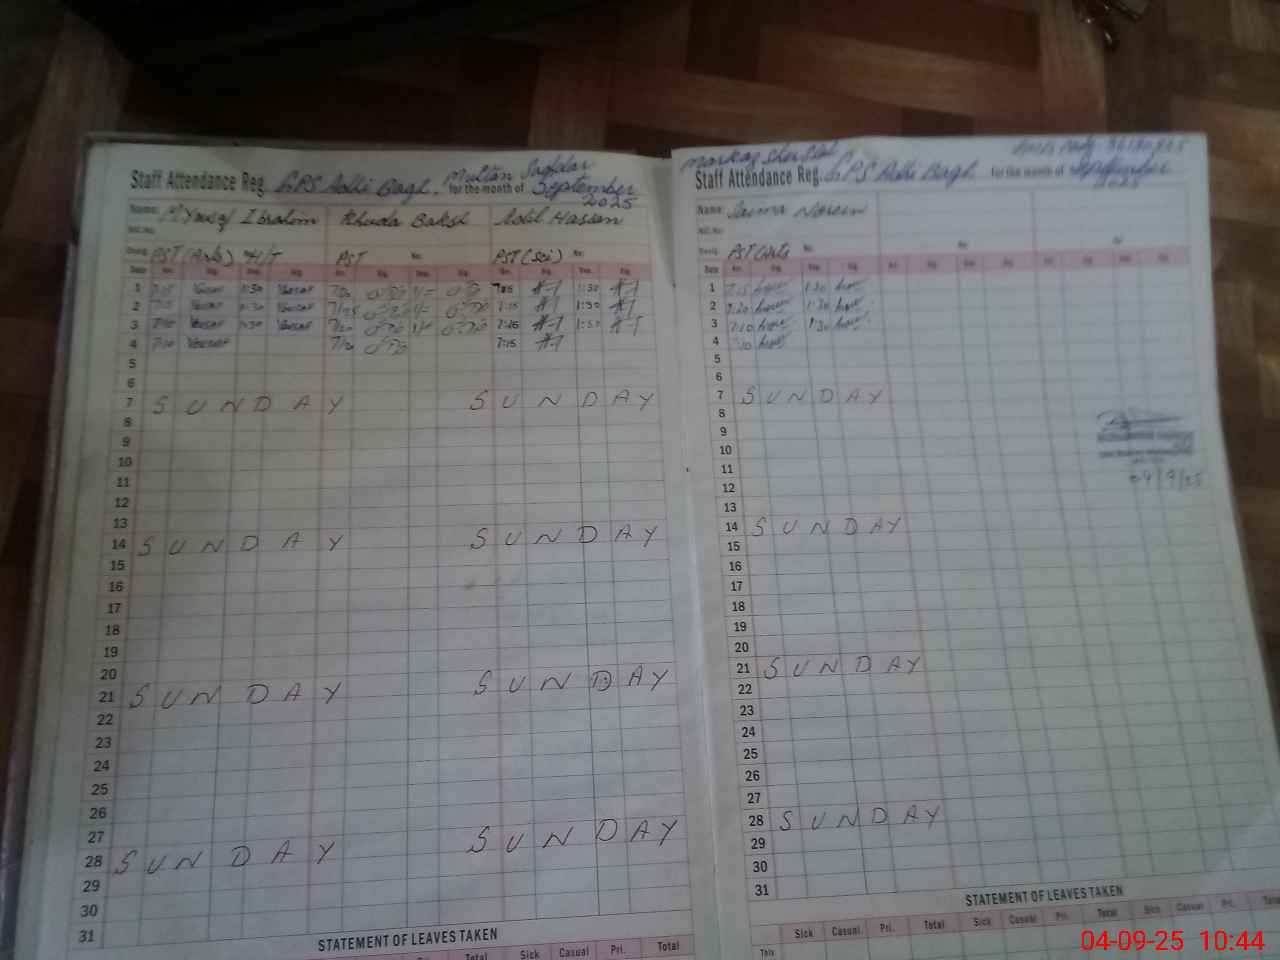 Staff Attendance Reg. GPS Adhi Bagh. Multan Saddar for the month of September 2025
Name: M Yousaf Ibrahim Khuda Baksh Adil Hassan
N.I.C. No.
Desig. PST (Arts) H/T PST No. PST (Sci) No.
Date Arr. Sig. Dep. Sig. Arr. Sig. Dep. Sig. Arr. Sig. Dep. Sig.
1 7:15 1:30 1:30
2 7:15 1:30 7:15 1:30
3 7:10 1:30 7/20 7:15 1:30
4 7:10 7/20 7:15
5
6
7 SUNDAY SUNDAY
8
9
10
11
12
13
14 SUNDAY SUNDAY
15
16
17
18
19
20
21 SUNDAY SUNDAY
22
23
24
25
26
27
28 SUNDAY SUNDAY
29
30
31
STATEMENT OF LEAVES TAKEN
Sick Casual Pri. Total
Markaz
Staff Attendance Reg. GPS Adhi Bagh for the month of September 2025
Name: Saima Noreen
N.I.C. No.
Desig. PST (Arts No. No. No.
Date Arr. Sig. Dep. Sig. Arr. Sig. Dep. Sig. Arr. Sig. Dep. Sig.
1 7:15 1:30
2 7:20 1:30
3 7:10 1:30
4 7:10
5
6
7 SUNDAY
8
9
10
11
12
13
14 SUNDAY
15
16
17
18
19
20
21 SUNDAY
22
23
24
25
26
27
28 SUNDAY
29
30
31
04/9/25
STATEMENT OF LEAVES TAKEN
Sick Casual Pri. Total Sick Casual Pri. Total Sick Casual Pri. Total
This
04-09-25 10:44